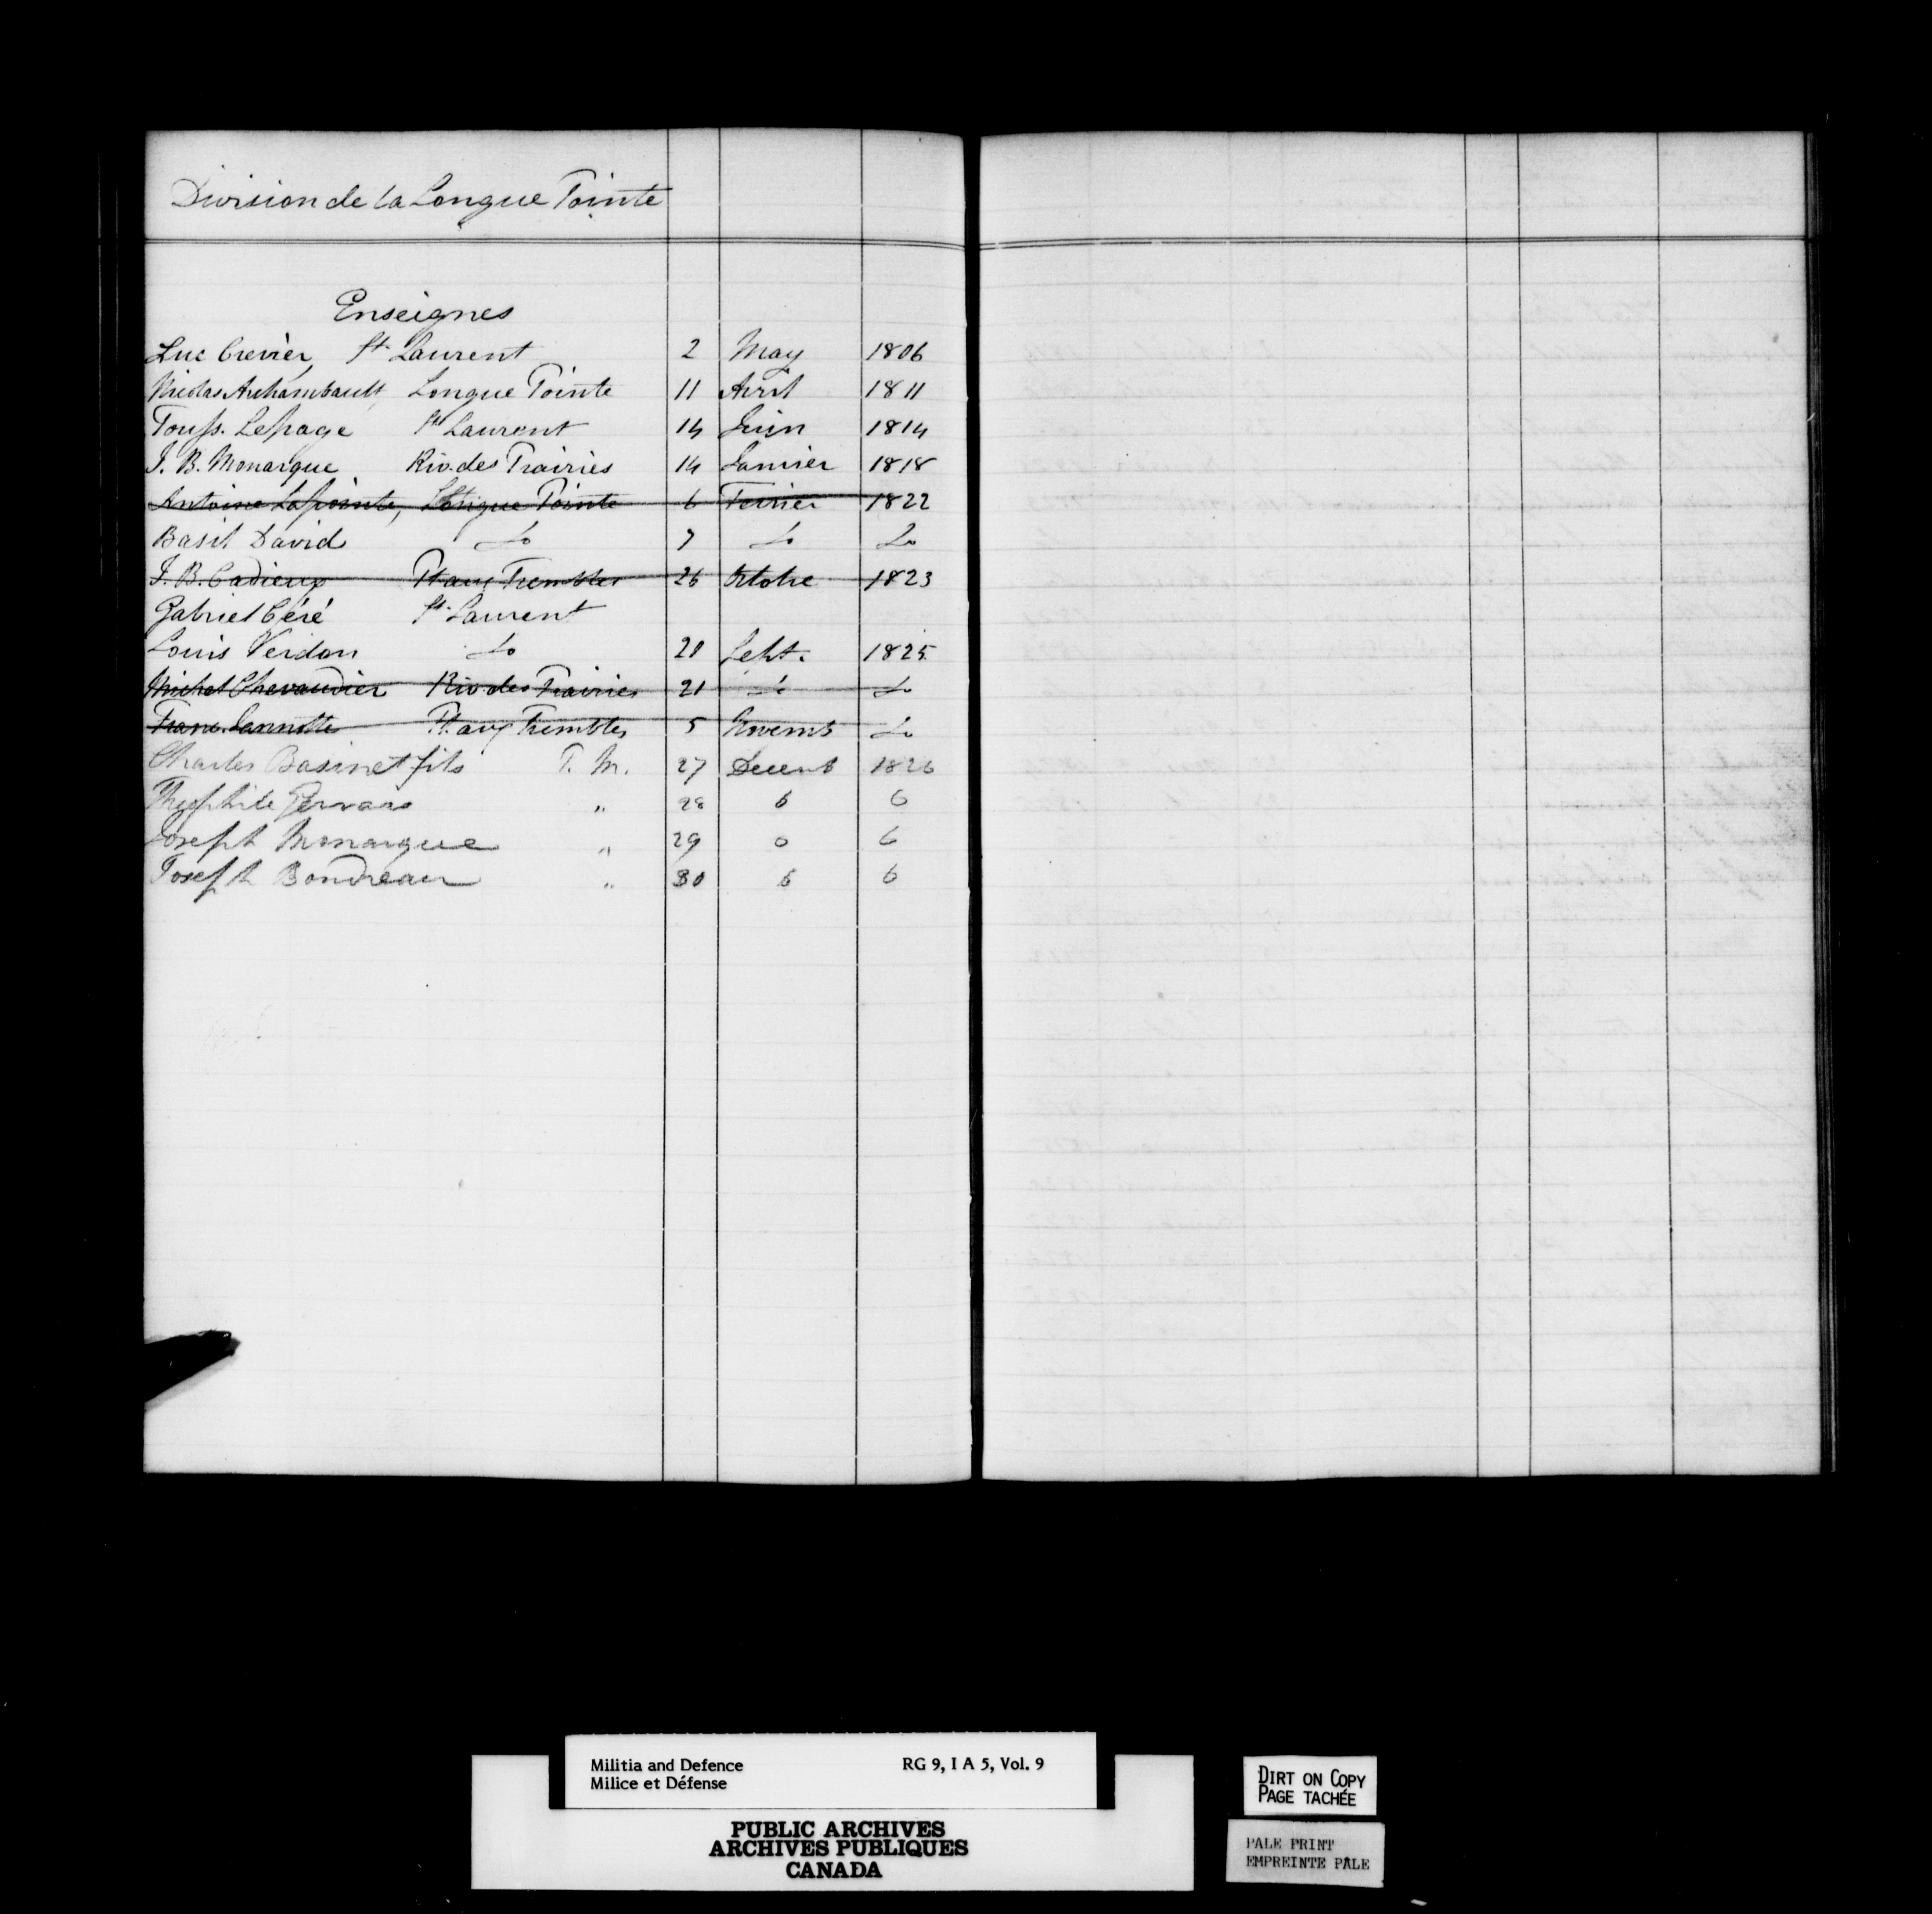 Division de la Longue Pointe
Enseignes
Luc Crevier, St. Laurent 2 May 1806
Nicolas Archambault, Longue Pointe 11 Avril 1811
Touss. Lepage St. Laurent 14 Juin 1814
J. B. Monarque Riv. des Prairies 14 Janvier 1818
Antoine Lapointe, Longue Pointe 6 Fevrier 1822
Basil David Do 7 Do Do
J. B. Cadieux Pt. aux Trembles 26 Octobre 1823
Gabriel Céré St. Laurent
Louis Verdon Do 20 Sept. 1825
Michel Chevaudier Riv des Prairies 21 Do Do
Franc. Jannotte Pt. aux Trembles 5 Novemb Do
Charles Basinet fils P. M. 27 Decemb 1826
Gervais " 28 6 6
Joseph Monarque " 29 0 6
Joseph Boudreau " 30 6 6
Militia and Defence RG 9, I A 5, Vol. 9
Milice et Défense
PUBLIC ARCHIVES
ARCHIVES PUBLIQUES
CANADA
DIRT ON COPY
PAGE TACHÉE
PALE PRINT
EMPREINTE PÂLE